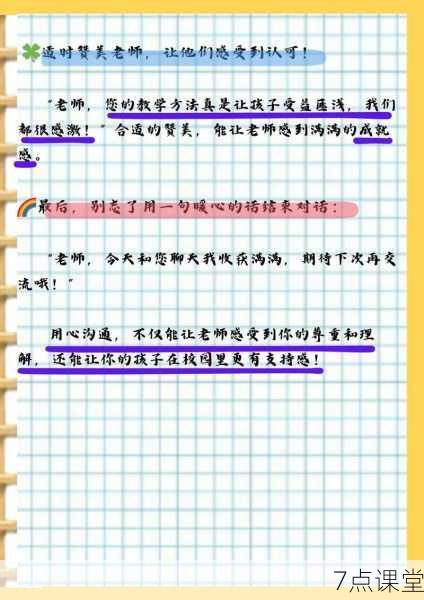 🍀适时赞美老师，让他们感受到认可！
“老师，您的教学方法真是让孩子受益匪浅，我们
都很感激！”合适的赞美，能让老师感到满满的成就
感。
🌈最后，别忘了用一句暖心的话结束对话：
“老师，今天和您聊天我收获满满，期待下次再交
流哦！”
用心沟通，不仅能让老师感受到你的尊重和理
解，还能让你的孩子在校园里更有支持感！
7点课堂